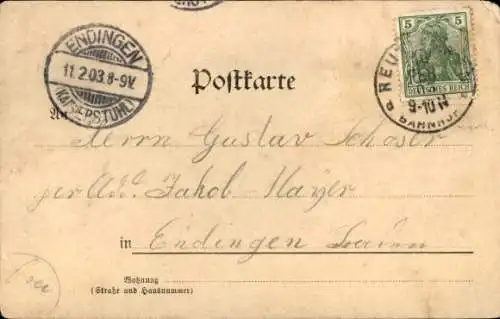 ENDINGEN
11.2.03.8-9V.
(KAISERSTUHL)
Postkarte
5 5
DEUTSCHES REICH
REU
9-10V
BAHNHOF
An
Herrn Gustav Schoser
per Ad. Jakob Mayer
in Endingen
Wohnung
(Straße und Hausnummer)